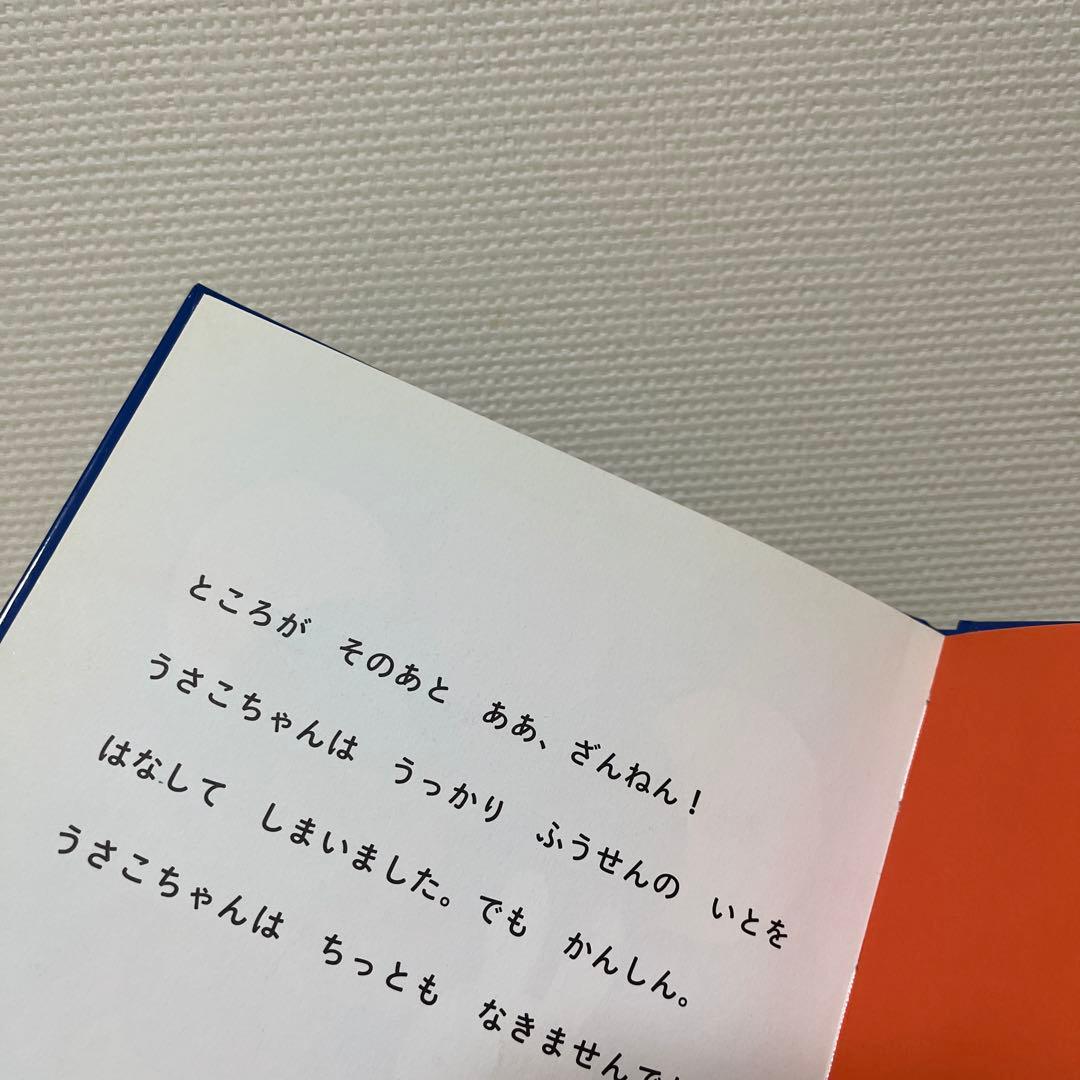 ところが　そのあと　ああ、ざんねん！
うさこちゃんは　うっかり　ふうせんの　いとを
はなして　しまいました。でも　かんしん。
うさこちゃんは　ちっとも　なきませんで